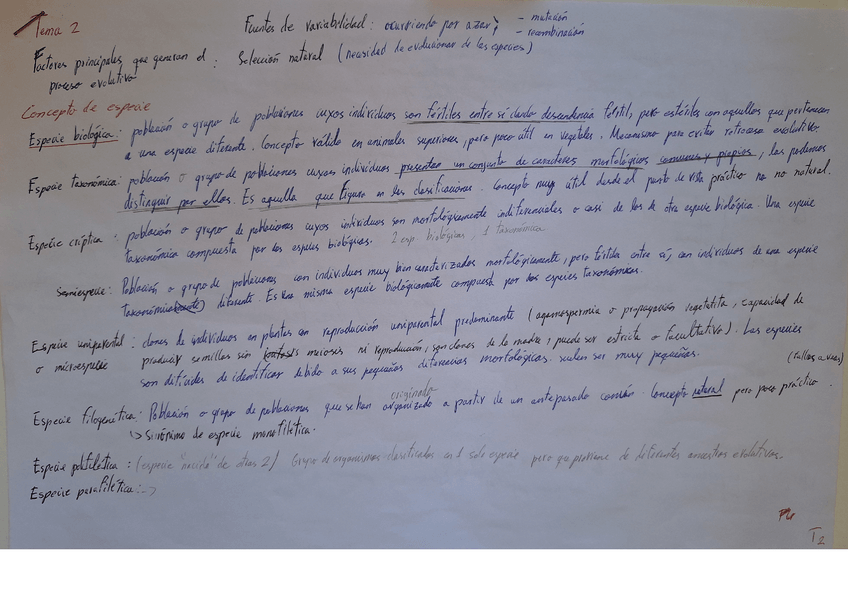 Tema 2
Fuentes de variabilidad: ocurriendo por azar; - mutación
- recombinación
Factores principales que generan el : Selección natural (necesidad de evolucionar de las especies)
proceso evolutivo
Concepto de especie
Especie biológica: población o grupo de poblaciones cuyos individuos son fértiles entre sí dando descendencia fértil, pero estériles con aquellos que pertenecen
a una especie diferente. Concepto válido en animales superiores, pero poco útil en vegetales. Mecanismo para evitar retroceso evolutivo.
Especie taxonómica: población o grupo de poblaciones cuyos individuos presentan un conjunto de caracteres morfológicos comunes y propios, las podemos
distinguir por ellos. Es aquella que figura en las clasificaciones. Concepto muy útil desde el punto de vista práctico no no natural.
Especie críptica: población o grupo de poblaciones cuyos individuos son morfológicamente indiferenciales o casi de los de otra especie biológica. Una especie
taxonómica compuesta por dos especies biológicas. 2 esp. biológicas, 1 taxonómica
Semiespecie: Población o grupo de poblaciones con individuos muy bien caracterizados morfológicamente, pero fértiles entre sí, con individuos de una especie
diferente. Es una misma especie biológicamente compuesta por dos especies taxonómicas.
Especie uniparental : clones de individuos en plantas con reproducción uniparental predominante (agamospermia o propagación vegetativa, capacidad de
o microespecie producir semillas sin meiosis ni reproducción, son clones de la madre; puede ser estricta o facultativa). Las especies
son difíciles de identificar debido a sus pequeñas diferencias morfológicas. suelen ser muy pequeñas.
Especie filogenética: Población o grupo de poblaciones que se han originado organizado a partir de un antepasado común. Concepto natural pero poco práctico.
Sinónimo de especie monofilética.
Especie polifilética: (especie "nacida" de otras 2) Grupo de organismos clasificados en 1 sola especie pero que proviene de diferentes ancestros evolutivos.
Especie parafilética:
T2